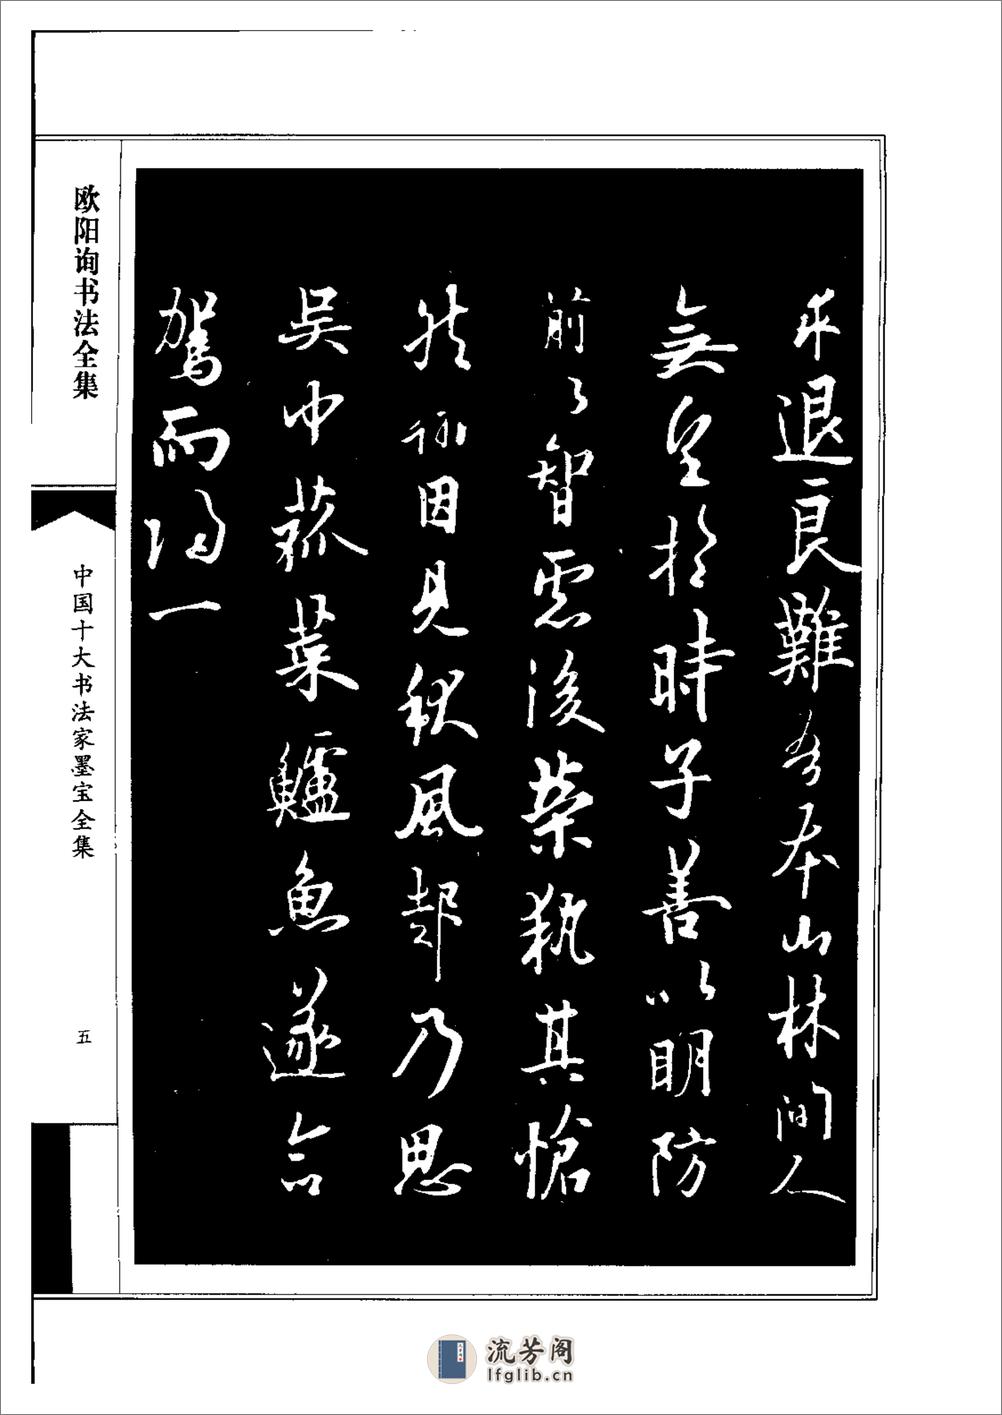 求退良難吾本山林間人
無望於時子善以明防
前以智慮後榮執其愴
然詠因見秋風起乃思
吳中菰菜鱸魚遂命
駕而歸一
欧阳询书法全集
中国十大书法家墨宝全集
五
流芳阁
lfglib.cn